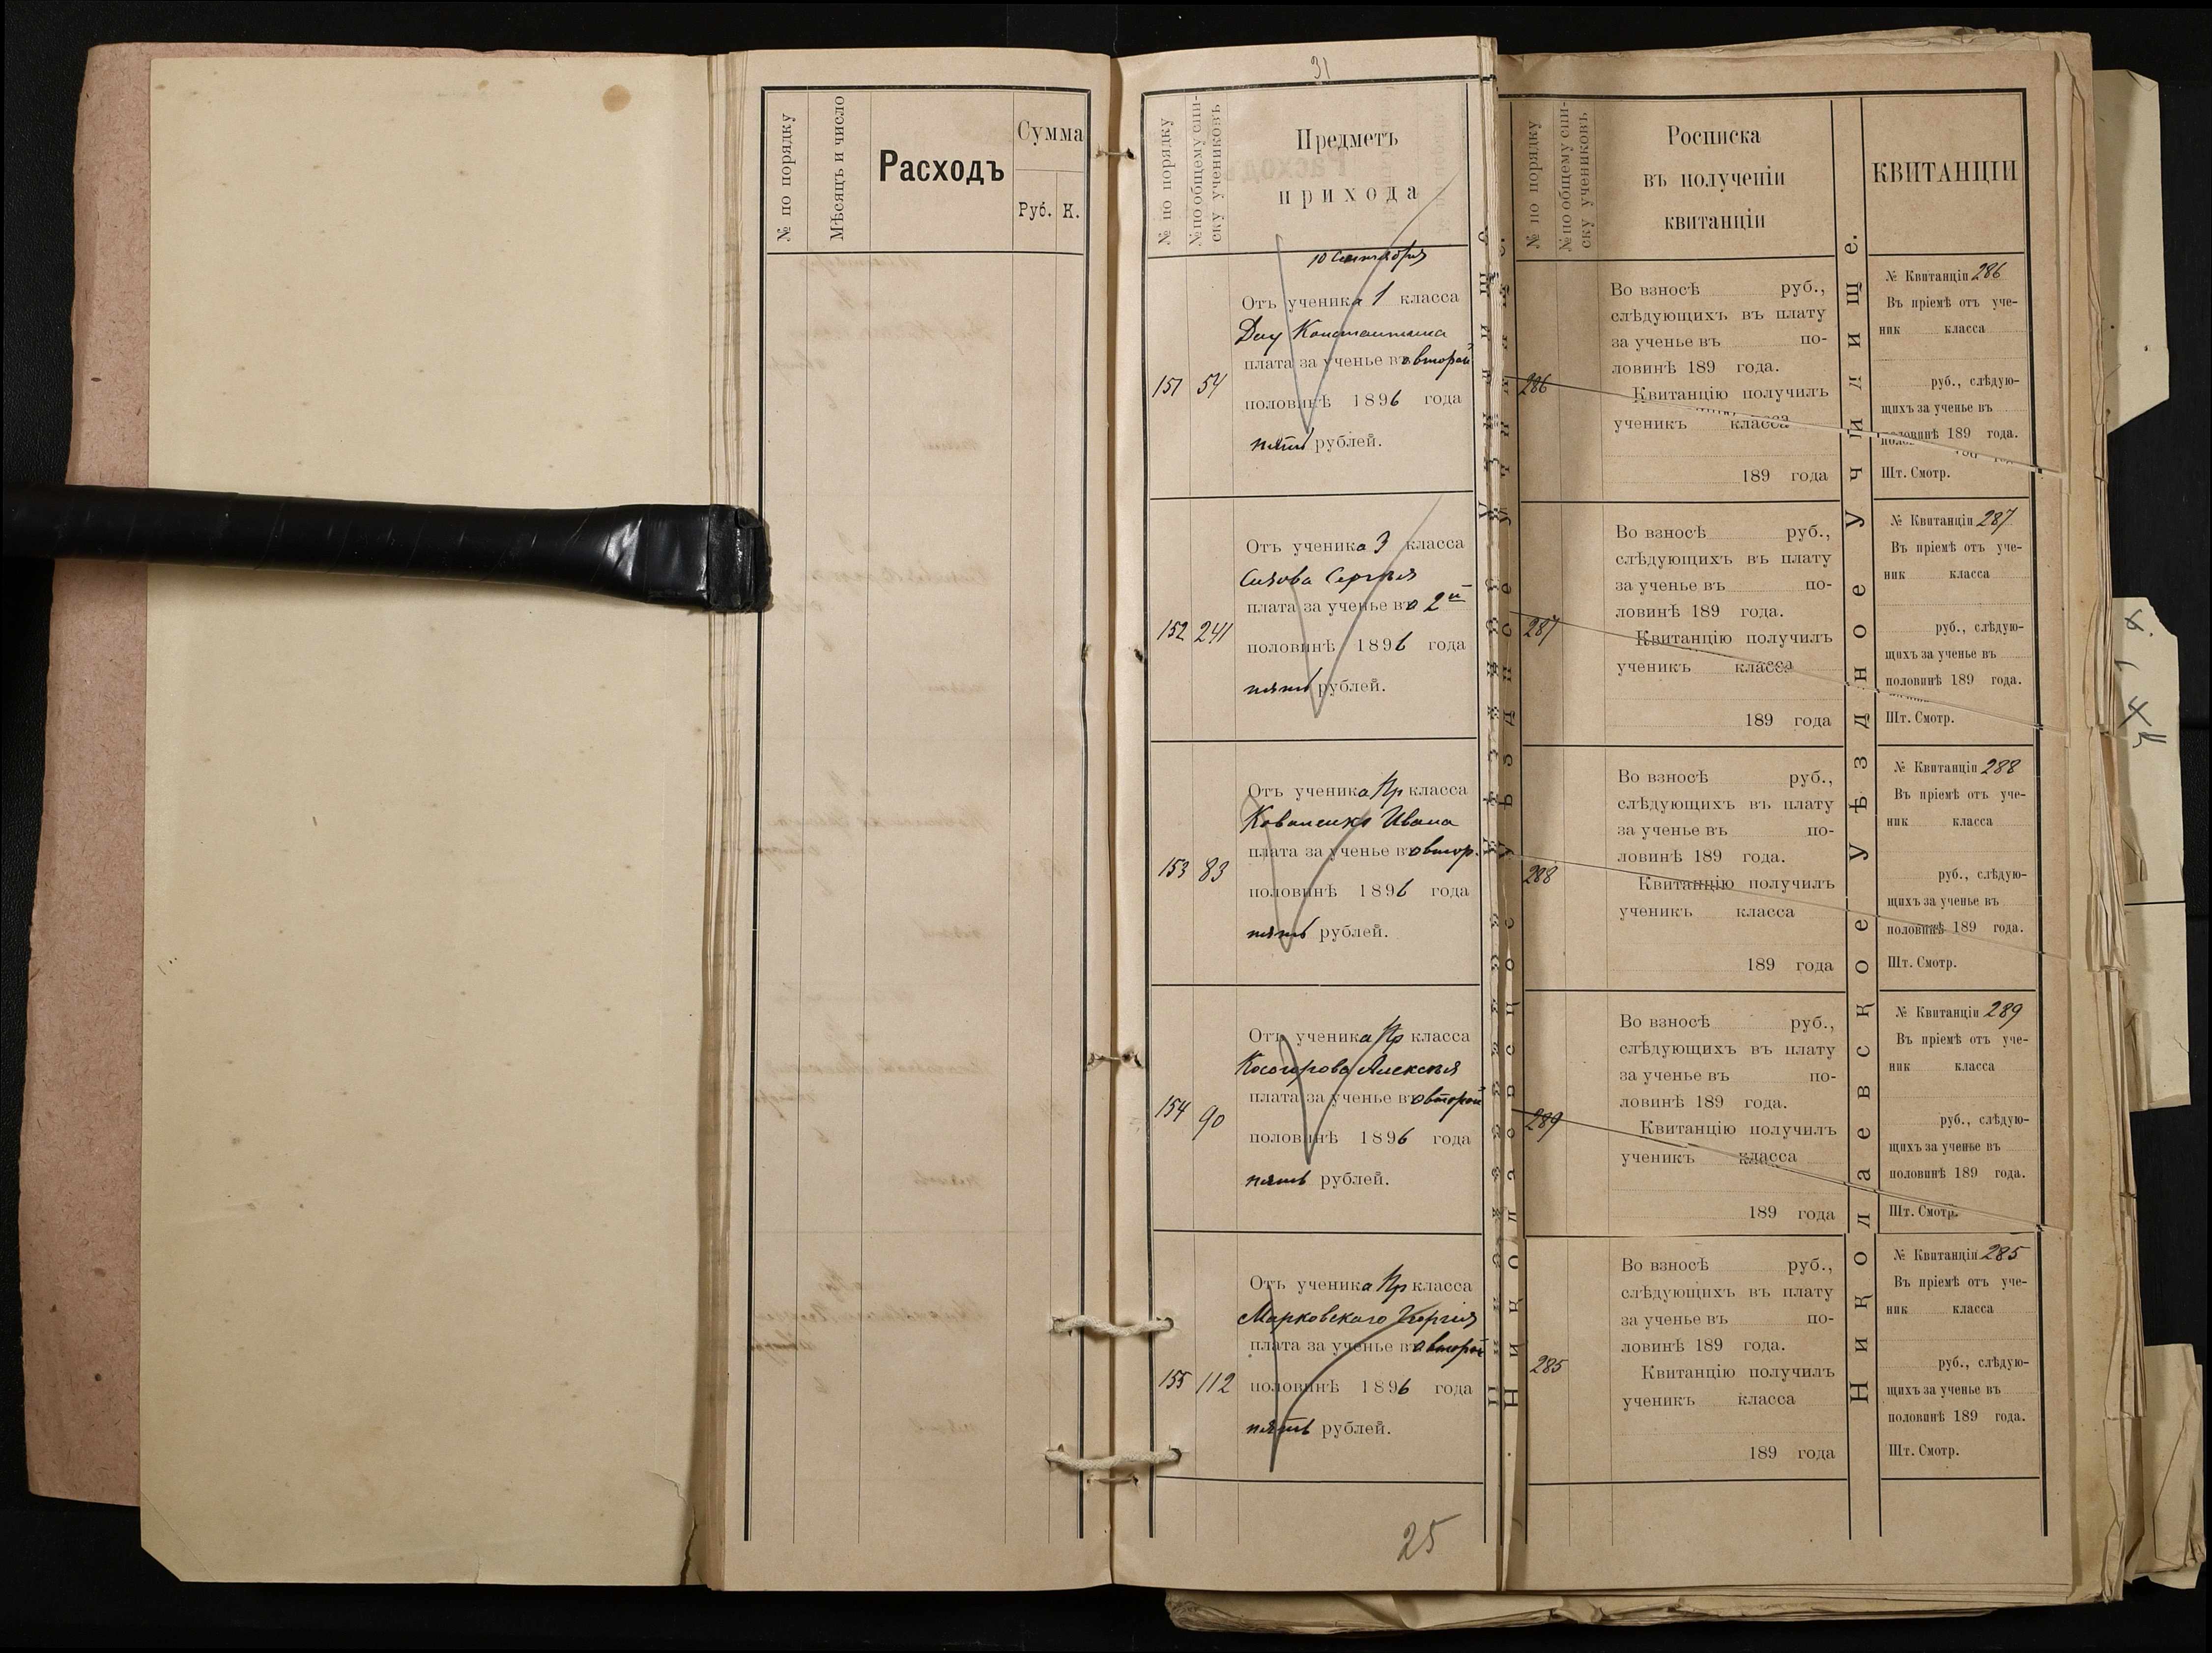 № по порядку
Мѣсяцъ и число
Расходъ
Сумма
Руб. К.
31
№ по порядку
№ по общему спи-
ску учениковъ
Предметъ
прихода
10 Сентября
Отъ ученика 1 класса
Константина
плата за ученье во второй
151 54
половинѣ 1896 года
пять рублей.
Отъ ученика 3 класса
Сизова Сергѣя
плата за ученье во 2й
152 241
половинѣ 1896 года
пять рублей.
Отъ ученика Пр класса
Коваленко Ивана
плата за ученье во втор.
153 83
половинѣ 1896 года
пять рублей.
Отъ ученика Пр класса
Косогорова Алексѣя
плата за ученье во второй
154 90
половинѣ 1896 года
пять рублей.
Отъ ученика Пр класса
Марковскаго Георгія
плата за ученье во второй
155 112
половинѣ 1896 года
пять рублей.
25
№ по порядку
№ по общему спи-
ску учениковъ.
Росписка
въ полученіи
квитанціи
286
Во взносѣ руб.,
слѣдующихъ въ плату
за ученье въ по-
ловинѣ 189 года.
Квитанцію получилъ
ученикъ класса
189 года
287
Во взносѣ руб.,
слѣдующихъ въ плату
за ученье въ по-
ловинѣ 189 года.
Квитанцію получилъ
ученикъ класса
189 года
288
Во взносѣ руб.,
слѣдующихъ въ плату
за ученье въ по-
ловинѣ 189 года.
Квитанцію получилъ
ученикъ класса
189 года
289
Во взносѣ руб.,
слѣдующихъ въ плату
за ученье въ по-
ловинѣ 189 года.
Квитанцію получилъ
ученикъ класса
189 года
285
Во взносѣ руб.,
слѣдующихъ въ плату
за ученье въ по-
ловинѣ 189 года.
Квитанцію получилъ
ученикъ класса
189 года
Николаевское Уѣздное Училище.
КВИТАНЦІИ
№ Квитанціи 286
Въ пріемѣ отъ уче-
ник класса
руб., слѣдую-
щихъ за ученье въ
половинѣ 189 года.
Шт. Смотр.
№ Квитанціи 287
Въ пріемѣ отъ уче-
ник класса
руб., слѣдую-
щихъ за ученье въ
половинѣ 189 года.
Шт. Смотр.
№ Квитанціи 288
Въ пріемѣ отъ уче-
ник класса
руб., слѣдую-
щихъ за ученье въ
половинѣ 189 года.
Шт. Смотр.
№ Квитанціи 289
Въ пріемѣ отъ уче-
ник класса
руб., слѣдую-
щихъ за ученье въ
половинѣ 189 года.
Шт. Смотр.
№ Квитанціи 285
Въ пріемѣ отъ уче-
ник класса
руб., слѣдую-
щихъ за ученье въ
половинѣ 189 года.
Шт. Смотр.